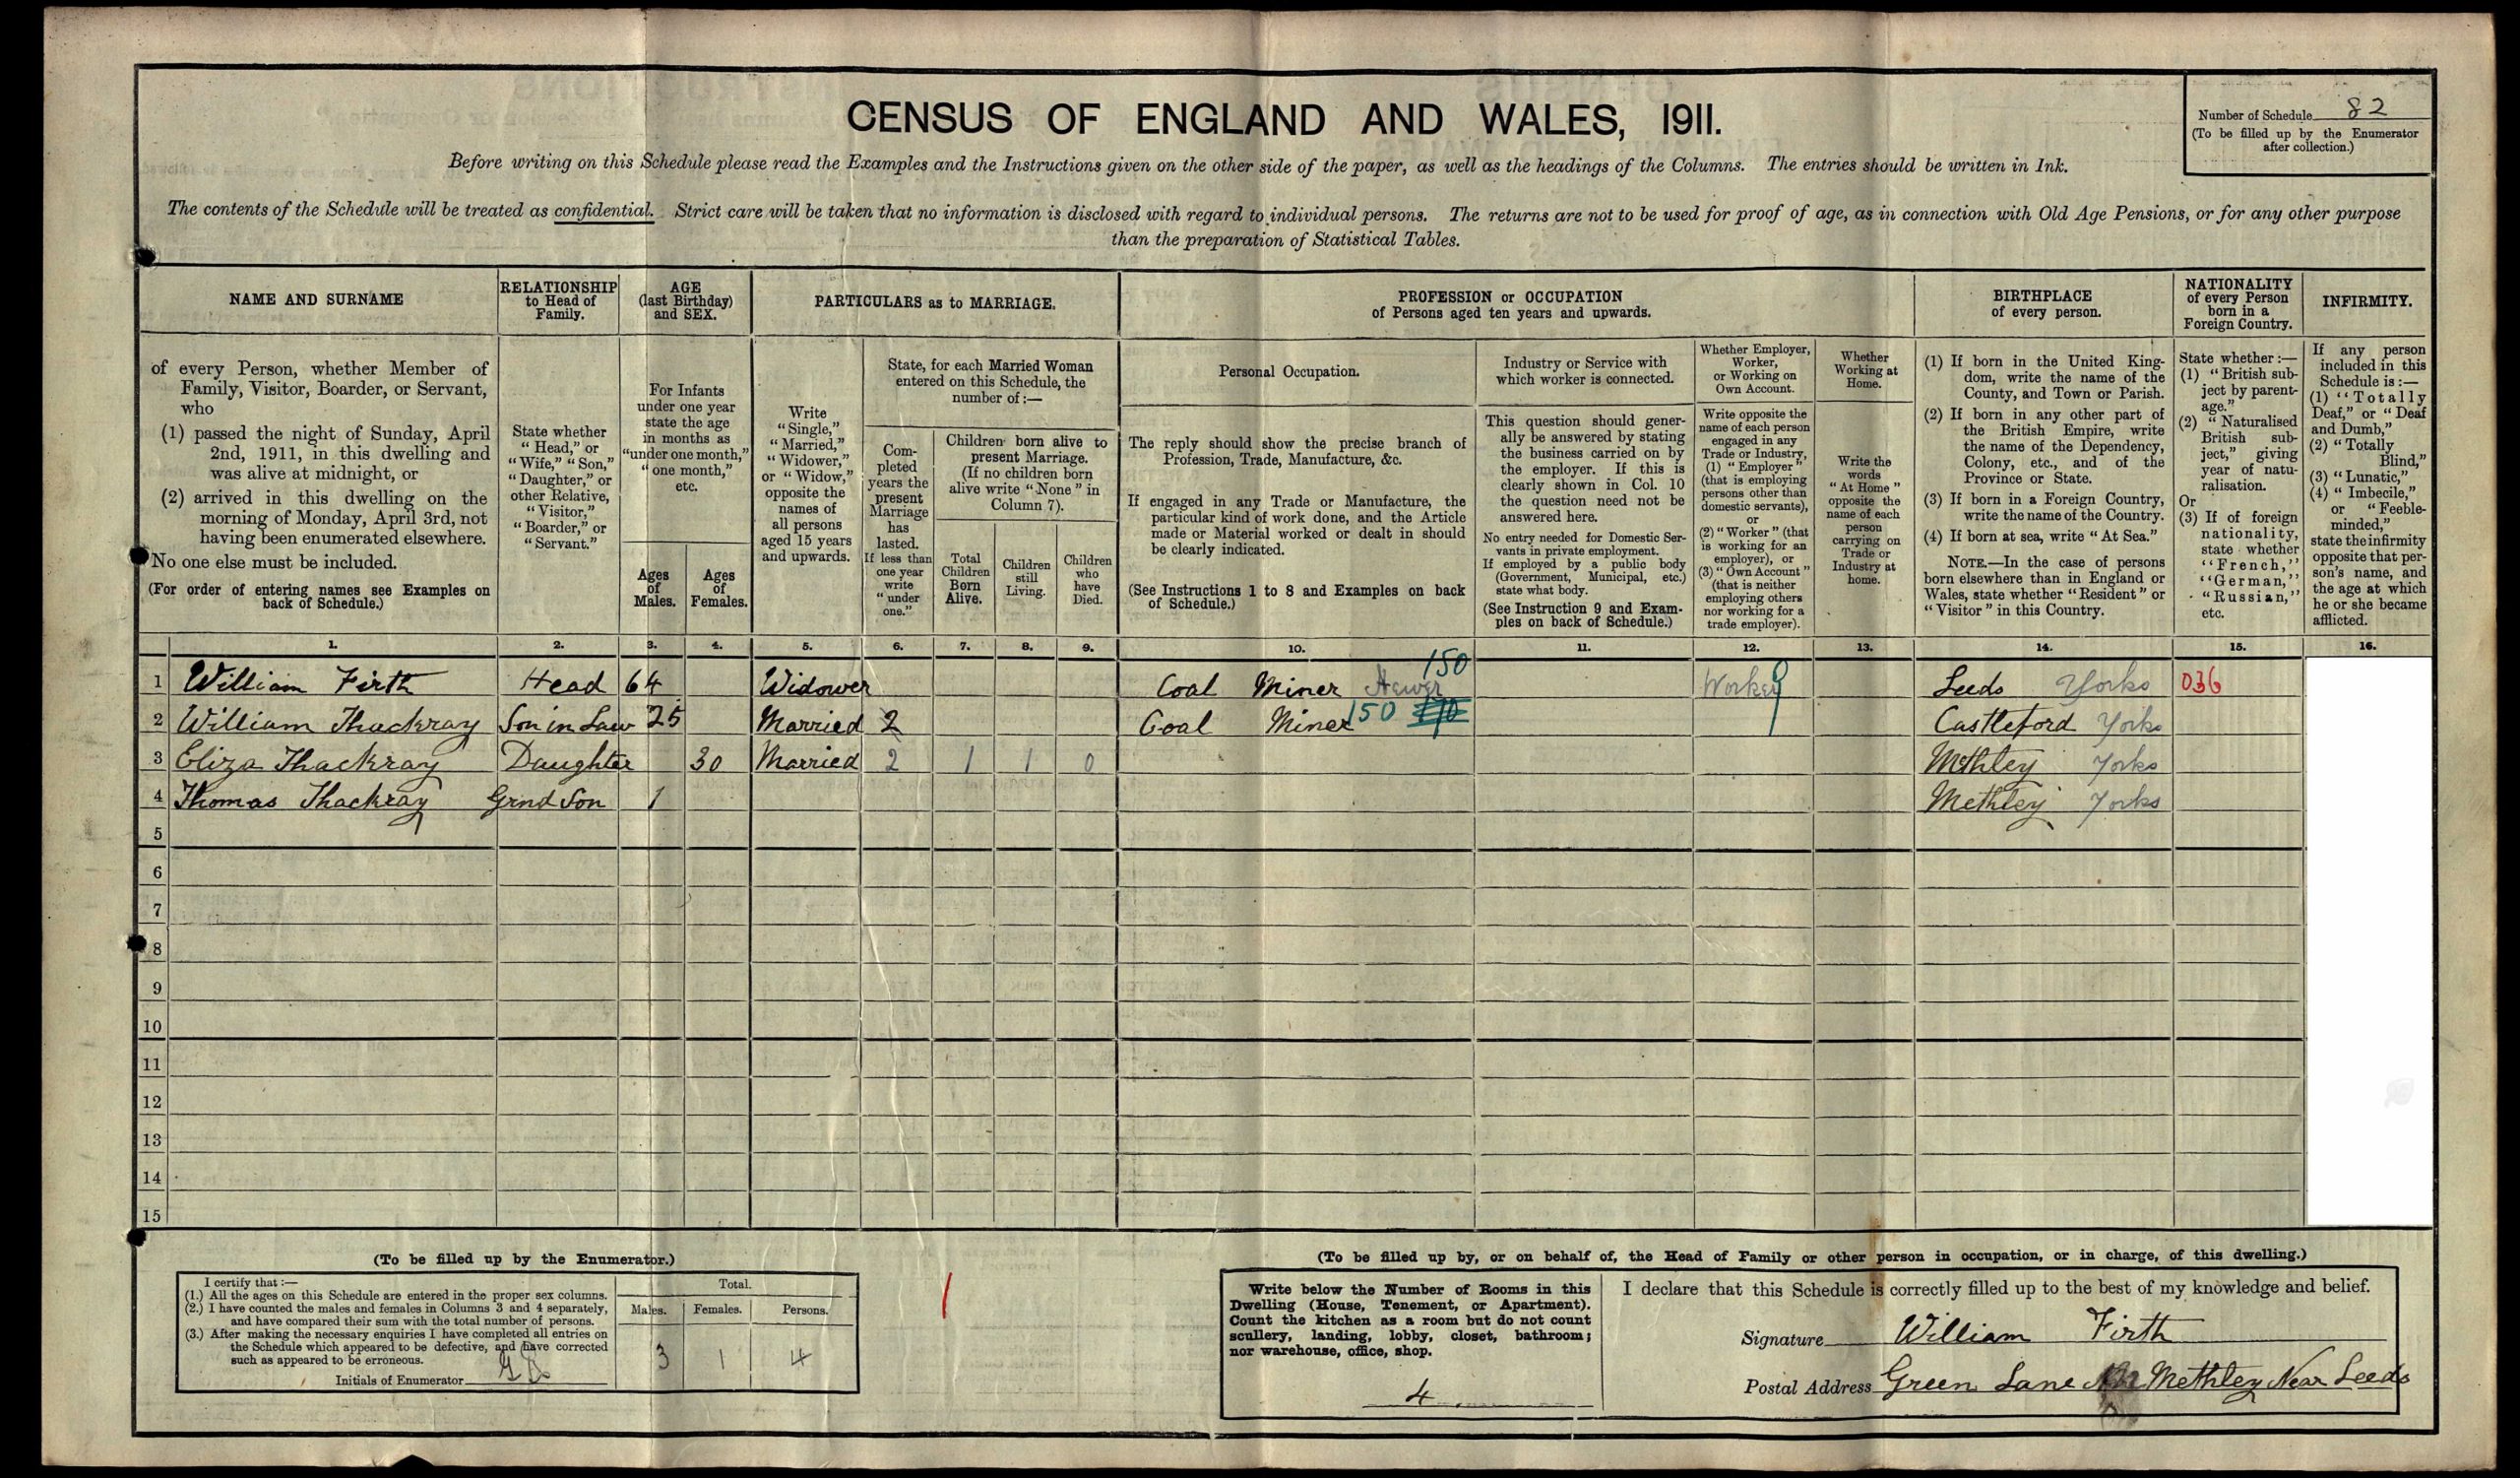 CENSUS OF ENGLAND AND WALES, 1911.
Number of Schedule 82
(To be filled up by the Enumerator
after collection.)
Before writing on this Schedule please read the Examples and the Instructions given on the other side of the paper, as well as the headings of the Columns. The entries should be written in Ink.
The contents of the Schedule will be treated as confidential. Strict care will be taken that no information is disclosed with regard to individual persons. The returns are not to be used for proof of age, as in connection with Old Age Pensions, or for any other purpose
than the preparation of Statistical Tables.
NAME AND SURNAME
of every Person, whether Member of
Family, Visitor, Boarder, or Servant,
who
(1) passed the night of Sunday, April
2nd, 1911, in this dwelling and
was alive at midnight, or
(2) arrived in this dwelling on the
morning of Monday, April 3rd, not
having been enumerated elsewhere.
No one else must be included.
(For order of entering names see Examples on
back of Schedule.)
RELATIONSHIP
to Head of
Family.
State whether
"Head," or
"Wife," "Son,"
"Daughter," or
other Relative,
"Visitor,"
"Boarder," or
"Servant."
AGE
(last Birthday)
and SEX.
For Infants
under one year
state the age
in months as
"under one month,"
"one month,"
etc.
Ages
of
Males.
Ages
of
Females.
PARTICULARS as to MARRIAGE.
Write
"Single,"
"Married,"
"Widower,"
or "Widow,"
opposite the
names of
all persons
aged 15 years
and upwards.
State, for each Married Woman
entered on this Schedule, the
number of :—
Com-
pleted
years the
present
Marriage
has
lasted.
If less than
one year
write
"under
one."
Children born alive to
present Marriage.
(If no children born
alive write "None" in
Column 7).
Total
Children
Born
Alive.
Children
still
Living.
Children
who
have
Died.
PROFESSION or OCCUPATION
of Persons aged ten years and upwards.
Personal Occupation.
The reply should show the precise branch of
Profession, Trade, Manufacture, &c.
If engaged in any Trade or Manufacture, the
particular kind of work done, and the Article
made or Material worked or dealt in should
be clearly indicated.
(See Instructions 1 to 8 and Examples on back
of Schedule.)
Industry or Service with
which worker is connected.
This question should gener-
ally be answered by stating
the business carried on by
the employer. If this is
clearly shown in Col. 10
the question need not be
answered here.
No entry needed for Domestic Ser-
vants in private employment.
If employed by a public body
(Government, Municipal, etc.)
state what body.
(See Instruction 9 and Exam-
ples on back of Schedule.)
Whether Employer,
Worker,
or Working on
Own Account.
Write opposite the
name of each person
engaged in any
Trade or Industry,
(1) "Employer"
(that is employing
persons other than
domestic servants),
or
(2) "Worker" (that
is working for an
employer), or
(3) "Own Account"
(that is neither
employing others
nor working for a
trade employer).
Whether
Working at
Home.
Write the
words
"At Home"
opposite the
name of each
person
carrying on
Trade or
Industry at
home.
BIRTHPLACE
of every person.
(1) If born in the United King-
dom, write the name of the
County, and Town or Parish.
(2) If born in any other part of
the British Empire, write
the name of the Dependency,
Colony, etc., and of the
Province or State.
(3) If born in a Foreign Country,
write the name of the Country.
(4) If born at sea, write "At Sea."
NOTE.—In the case of persons
born elsewhere than in England or
Wales, state whether "Resident" or
"Visitor" in this Country.
NATIONALITY
of every Person
born in a
Foreign Country.
State whether :—
(1) "British sub-
ject by parent-
age."
(2) "Naturalised
British sub-
ject," giving
year of natu-
ralisation.
Or
(3) If of foreign
nationality,
state whether
"French,"
"German,"
"Russian,"
etc.
INFIRMITY.
If any person
included in this
Schedule is :—
(1) "Totally
Deaf," or "Deaf
and Dumb,"
(2) "Totally
Blind,"
(3) "Lunatic,"
(4) "Imbecile,"
or "Feeble-
minded,"
state the infirmity
opposite that per-
son's name, and
the age at which
he or she became
afflicted.
1. 2. 3. 4. 5. 6. 7. 8. 9. 10. 11. 12. 13. 14. 15. 16.
1 William Firth Head 64 Widower Coal Miner Hewer 150 Worker Leeds Yorks 036
2 William Thackray Son in Law 25 Married 2 Coal Miner 150 Castleford Yorks
3 Eliza Thackray Daughter 30 Married 2 1 1 0 Methley Yorks
4 Thomas Thackray Grnd Son 1 Methley Yorks
5
6
7
8
9
10
11
12
13
14
15
(To be filled up by the Enumerator.)
I certify that :—
(1.) All the ages on this Schedule are entered in the proper sex columns.
(2.) I have counted the males and females in Columns 3 and 4 separately,
and have compared their sum with the total number of persons.
(3.) After making the necessary enquiries I have completed all entries on
the Schedule which appeared to be defective, and have corrected
such as appeared to be erroneous.
Initials of Enumerator
Total.
Males. Females. Persons.
3 1 4
(To be filled up by, or on behalf of, the Head of Family or other person in occupation, or in charge, of this dwelling.)
Write below the Number of Rooms in this
Dwelling (House, Tenement, or Apartment).
Count the kitchen as a room but do not count
scullery, landing, lobby, closet, bathroom;
nor warehouse, office, shop.
4
I declare that this Schedule is correctly filled up to the best of my knowledge and belief.
Signature William Firth
Postal Address Green Lane Methley Near Leeds